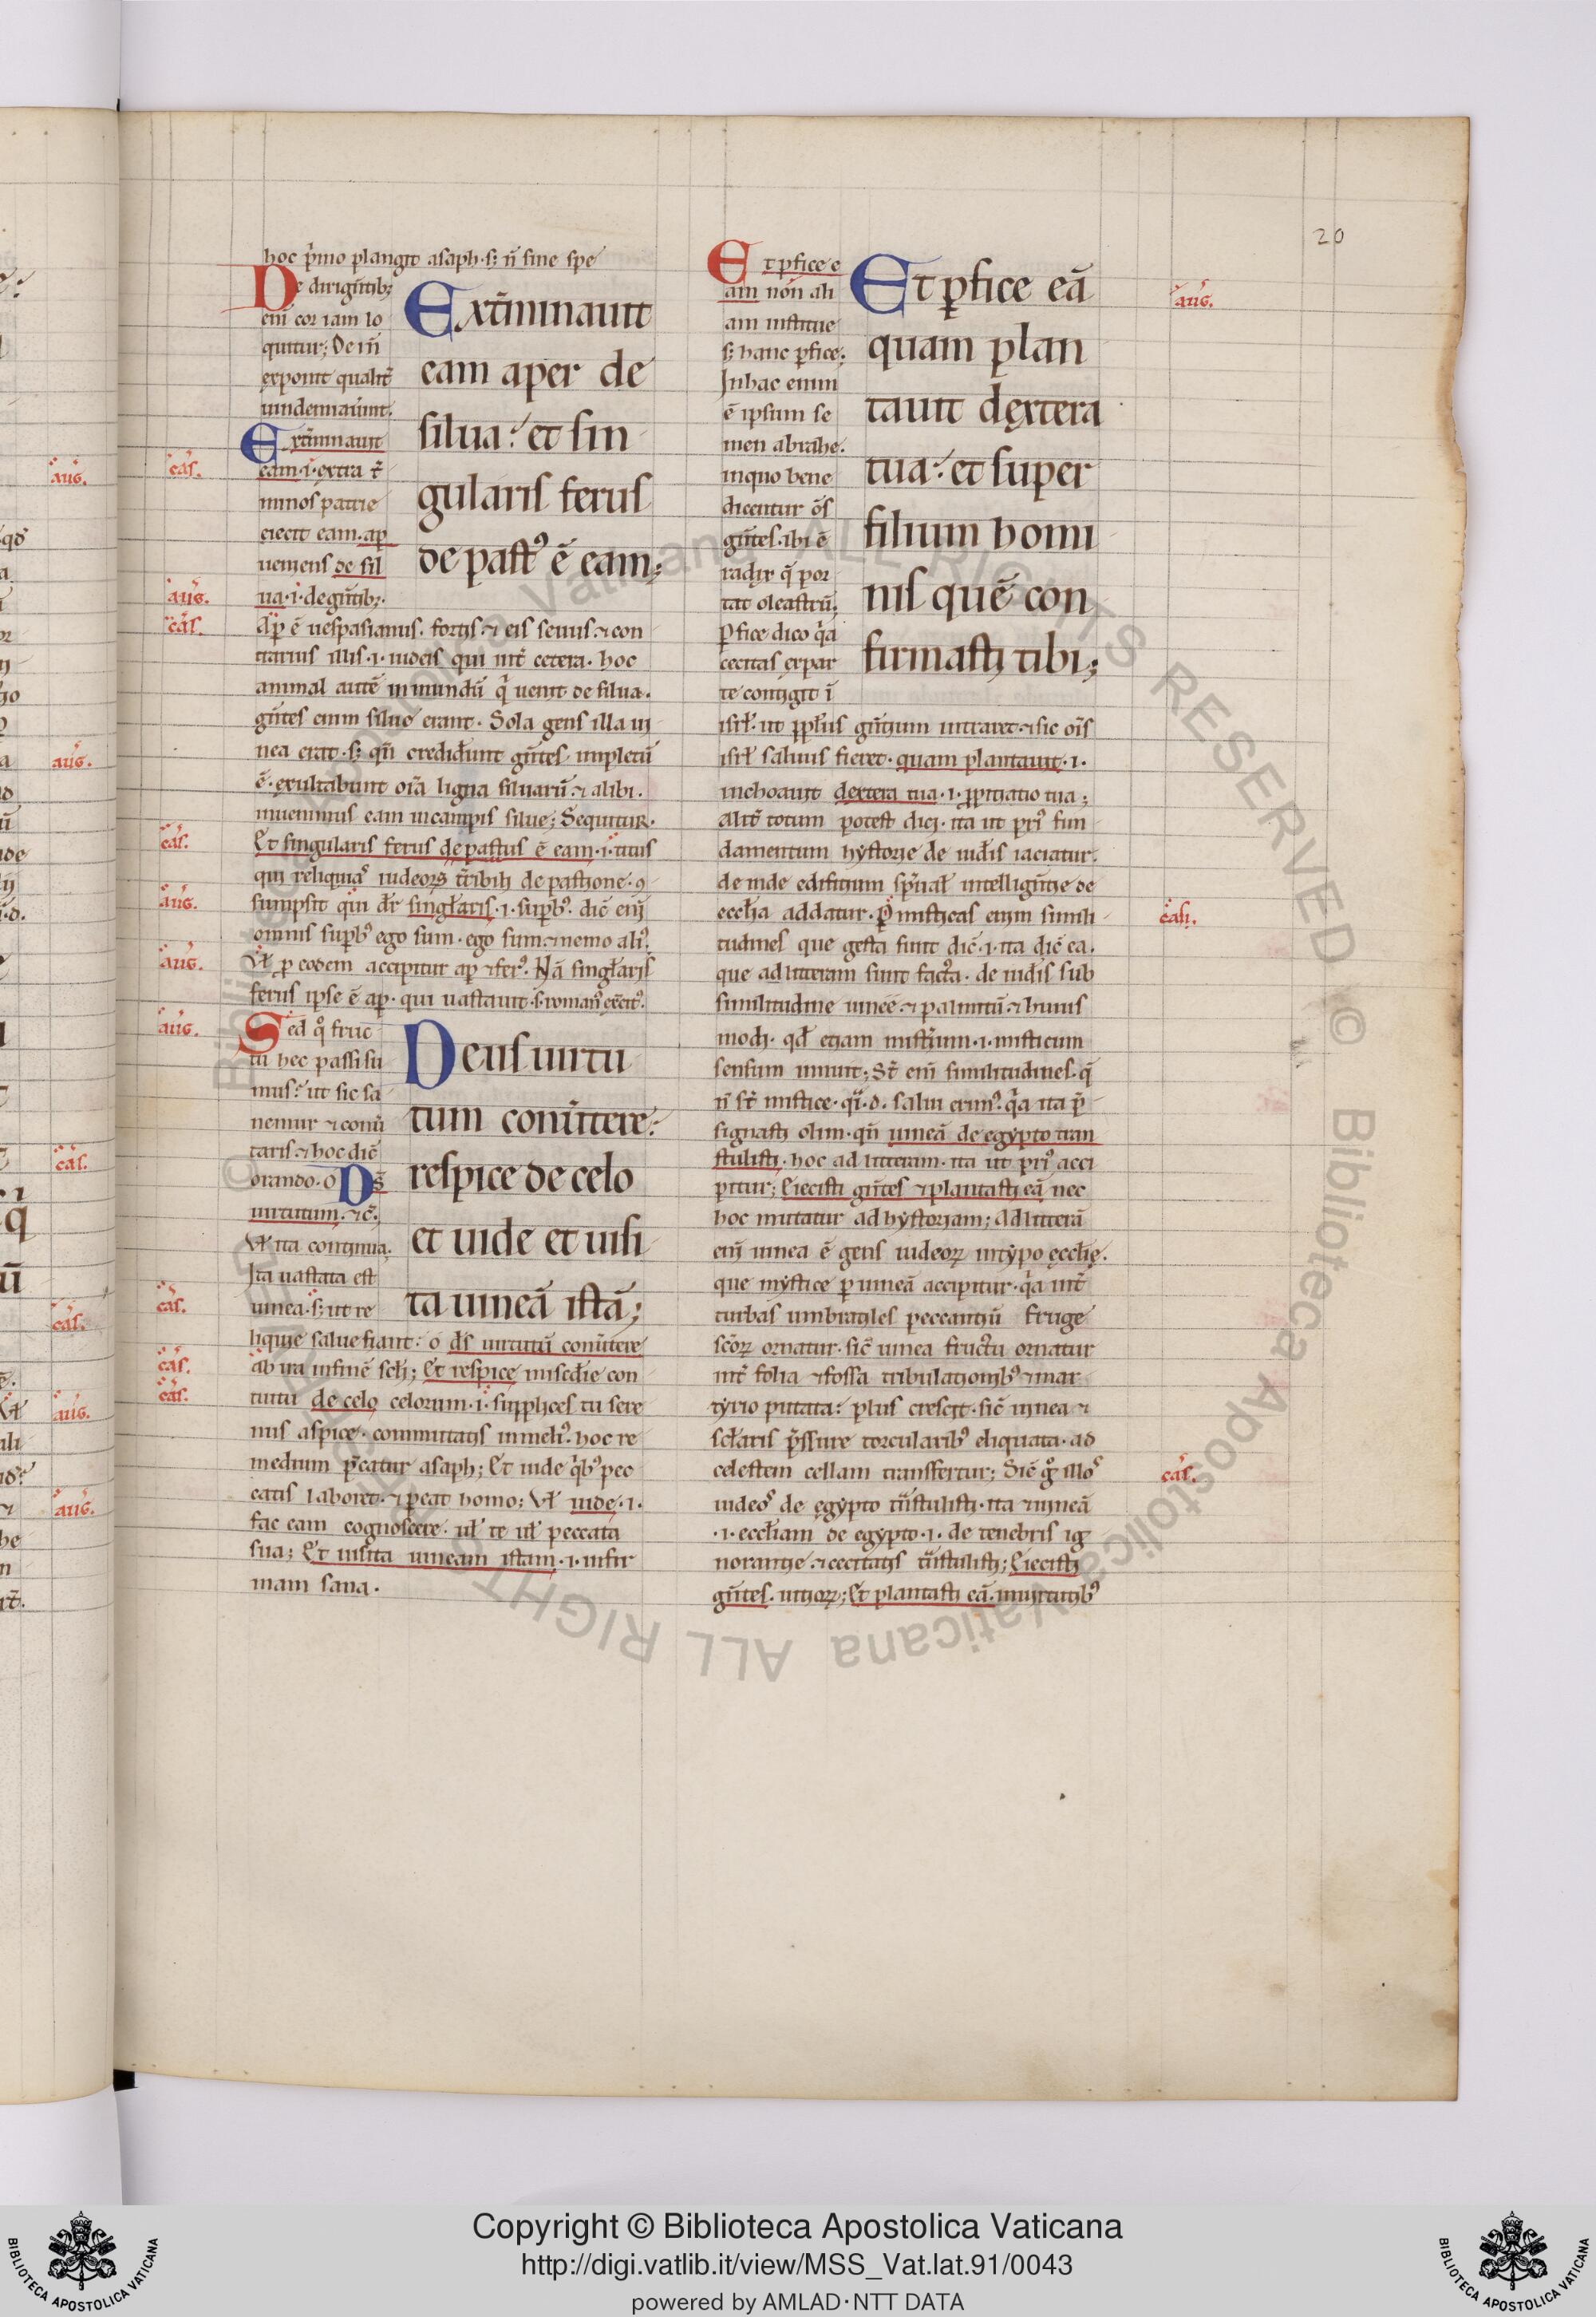 20
hoc p̓mo plangit asaph· s; n̄ sine spe
De dirigentib;
eni cor iam lo
quitur; De in̄
exponit qualit̄
uindemiauint.
Ext̄minauit
eam·i·extra t̄
minos patrie
eiecit eam·ap̄
ueniens de sil
ua·i·de gn̄tib;·
Ext̄minauit
eam aper de
silua: et sin
gularis ferus
de past⁹ ē eam;
Ap̄ ē uespasianus. fortis· ⁊ eis seuus· ⁊ con
trarius illis·i·iudeis qui int̄ cetera· hoc
animal autē inmundū q̓ uenit de silua·
gn̄tes enim silue erant· Sola gens illa ui
nea erat· s; qn̄ crediderunt gn̄tes· impletū
ē·exultabunt oīa ligna siluarū· ⁊ alibi·
inuenimus eam in campis silue; Sequitur·
Et singularis ferus depastus ē eam·i·titus
qui reliquias iudeoꝝ t̄ribili depastione·ꝯ
sumpsit qui dr̄ singlaris·i·supb⁹· dic̄ eni
omnis supb⁹ ego sum· ego sum· ⁊ nemo ali⁹·
Vł p eodem accipitur ap̄ ⁊ fer⁹· Nā singlaris
ferus ipse ē ap̄· qui uastauit·s·roman⁹ exc̄it⁹·
Sed qͦ fruc
tu hec passi su
mus? ut sic sa
nemur ⁊ conū
taris· ⁊ hoc dic̄
orando·o Ds̄
uirtutum·⁊c̄·
Vł ita continua·
Ita uastata est
uinea·s; ut re
Deus uirtu
tum conūtere:
respice de celo
et uide et uisi
ta uineā istā;
liquie salue fiant: o ds̄ uirtutū conūtere
ab ira in finē scłi; Et respice mis̄cdie con
tuitu de celo celorum·i·supplices tu sere
nus aspice· conmutatis in meli⁹· hoc re
medium p̄catur asaph; Et uide qͥb⁹ pec
catis laboret· ⁊ pereat homo; Vł uide·i·
fac eam cognoscere· uł te uł peccata
sua; Et uisita uineam istam·i·infir
mam sana·
Et pfice e
am non ali
am institue
s; hanc pfice;
In hac enim
ē ipsum se
men abrahe·
in quo bene
dicentur om̄s
gn̄tes·ibi ē
radix q̄ por
tat oleastrū;
Perfice dico qͥa
cecitas ex par
te contigit ī
Et pfice eā
quam plan
tauit dextera
tua: et super
filium homi
nis quē con
firmasti tibi;
isrł· ut pplus gn̄tium intraret· ⁊ sic oīs
isrł saluus fieret· quam plantauit·i·
inchoauit dextera tua·i·ppitiatio tua;
Alit̄ totum potest dici· ita ut pri⁹ fun
damentum hystorie de iudis iaciatur·
de inde edificium spūalł intelligentie de
eccłia addatur· P misticas enim simili
tudines que gesta sunt dic̄·i·ita dic̄ ea·
que ad litteram sunt facta· de iudis sub
similitudine uinee· ⁊ palmitū· ⁊ huius
modi· qđ etiam mist̄ium·i·misticum
sensum innuit; St̄ eni similitudines·q̄
n̄ st̄ mistice·qͥ·d·salui erim⁹· qͥa ita p̄
signasti olim· qn̄ uineā de egypto tran
stulisti· hoc ad litteram· ita ut pri⁹ acci
pitur; Eiecisti gn̄tes ⁊ plantasti eā nec
hoc mutatur ad hystoriam; Ad litterā
eni uinea ē gens iudeoꝝ in typo ęccłię·
que mystice p uineā accipitur· qͥa int̄
turbas umbratiles peccantiū fruge
scōꝝ ornatur· sic̄ uinea fructu ornatur
int̄ folia ⁊ fossa tribulationib⁹ ⁊ mar
tyrio putata: plus crescit· sic̄ uinea ⁊
scłaris p̄ssure torcularib⁹ eliquata· ad
celestem cellam transfertur; Sic̄ gͦ illos
iudeos de egypto tn̄stulisti· ita ⁊ uineā
·i·eccłiam de egypto·i·de tenebris ig
norantie ⁊ cecitatis tn̄stulisti; Eiecisti
gn̄tes· uitioꝝ; Et plantasti eā· in uirtutib⁹
aug.
cas.
aug.
cas.
cas.
aug.
aug.
aug.
cas.
cas.
cas.
aug.
cas.
cas.
Copyright © Biblioteca Apostolica Vaticana
http://digi.vatlib.it/view/MSS_Vat.lat.91/0043
powered by AMLAD·NTT DATA
BIBLIOTECA APOSTOLICA VATICANA
BIBLIOTECA APOSTOLICA VATICANA